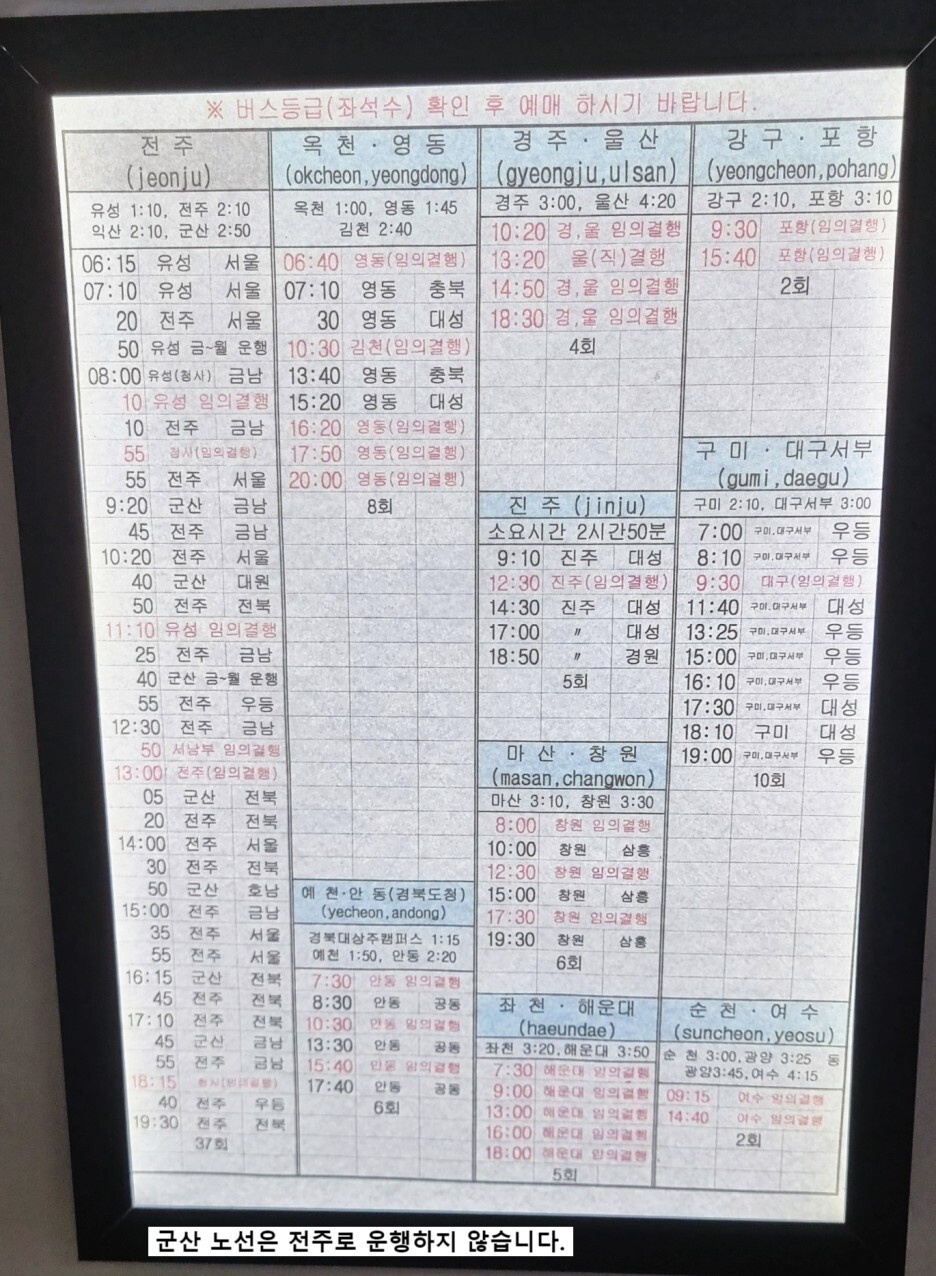 ※ 버스등급(좌석수) 확인 후 예매 하시기 바랍니다.
전 주
(jeonju)
유성 1:10, 전주 2:10
익산 2:10, 군산 2:50
06:15 유성 서울
07:10 유성 서울
20 전주 서울
50 유성 금~월 운행
08:00 유성(청사) 금남
10 유성 임의결행
10 전주 금남
55 청사(임의결행)
55 전주 서울
9:20 군산 금남
45 전주 금남
10:20 전주 서울
40 군산 대원
50 전주 전북
11:10 유성 임의결행
25 전주 금남
40 군산 금~월 운행
55 전주 우등
12:30 전주 금남
50 서남부 임의결행
13:00 전주(임의결행)
05 군산 전북
20 전주 전북
14:00 전주 서울
30 전주 전북
50 군산 호남
15:00 전주 금남
35 전주 서울
55 전주 서울
16:15 군산 전북
45 전주 전북
17:10 전주 전북
45 군산 금남
55 전주 금남
18:15 청사(임의결행)
40 전주 우등
19:30 전주 전북
37회
옥 천 · 영 동
(okcheon,yeongdong)
옥천 1:00, 영동 1:45
김천 2:40
06:40 영동(임의결행)
07:10 영동 충북
30 영동 대성
10:30 김천(임의결행)
13:40 영동 충북
15:20 영동 대성
16:20 영동(임의결행)
17:50 영동(임의결행)
20:00 영동(임의결행)
8회
예 천·안 동(경북도청)
(yecheon,andong)
경북대상주캠퍼스 1:15
예천 1:50, 안동 2:20
7:30 안동 임의결행
8:30 안동 공동
10:30 안동 임의결행
13:30 안동 공동
15:40 안동 임의결행
17:40 안동 공동
6회
경 주 · 울 산
(gyeongju,ulsan)
경주 3:00, 울산 4:20
10:20 경,울 임의결행
13:20 울(직)결행
14:50 경,울 임의결행
18:30 경,울 임의결행
4회
진 주 (jinju)
소요시간 2시간50분
9:10 진주 대성
12:30 진주(임의결행)
14:30 진주 대성
17:00 〃 대성
18:50 〃 경원
5회
마 산 · 창 원
(masan,changwon)
마산 3:10, 창원 3:30
8:00 창원 임의결행
10:00 창원 삼흥
12:30 창원 임의결행
15:00 창원 삼흥
17:30 창원 임의결행
19:30 창원 삼흥
6회
좌 천 · 해운대
(haeundae)
좌천 3:20,해운대 3:50
7:30 해운대 임의결행
9:00 해운대 임의결행
13:00 해운대 임의결행
16:00 해운대 임의결행
18:00 해운대 임의결행
5회
강 구 · 포 항
(yeongcheon,pohang)
강구 2:10, 포항 3:10
9:30 포항(임의결행)
15:40 포항(임의결행)
2회
구 미 · 대구서부
(gumi,daegu)
구미 2:10, 대구서부 3:00
7:00 구미,대구서부 우등
8:10 구미,대구서부 우등
9:30 대구(임의결행)
11:40 구미,대구서부 대성
13:25 구미,대구서부 우등
15:00 구미,대구서부 우등
16:10 구미,대구서부 우등
17:30 구미,대구서부 대성
18:10 구미 대성
19:00 구미,대구서부 우등
10회
순 천 · 여 수
(suncheon,yeosu)
순 천 3:00,광양 3:25 동
광양3:45,여수 4:15
09:15 여수 임의결행
14:40 여수 임의결행
2회
군산 노선은 전주로 운행하지 않습니다.